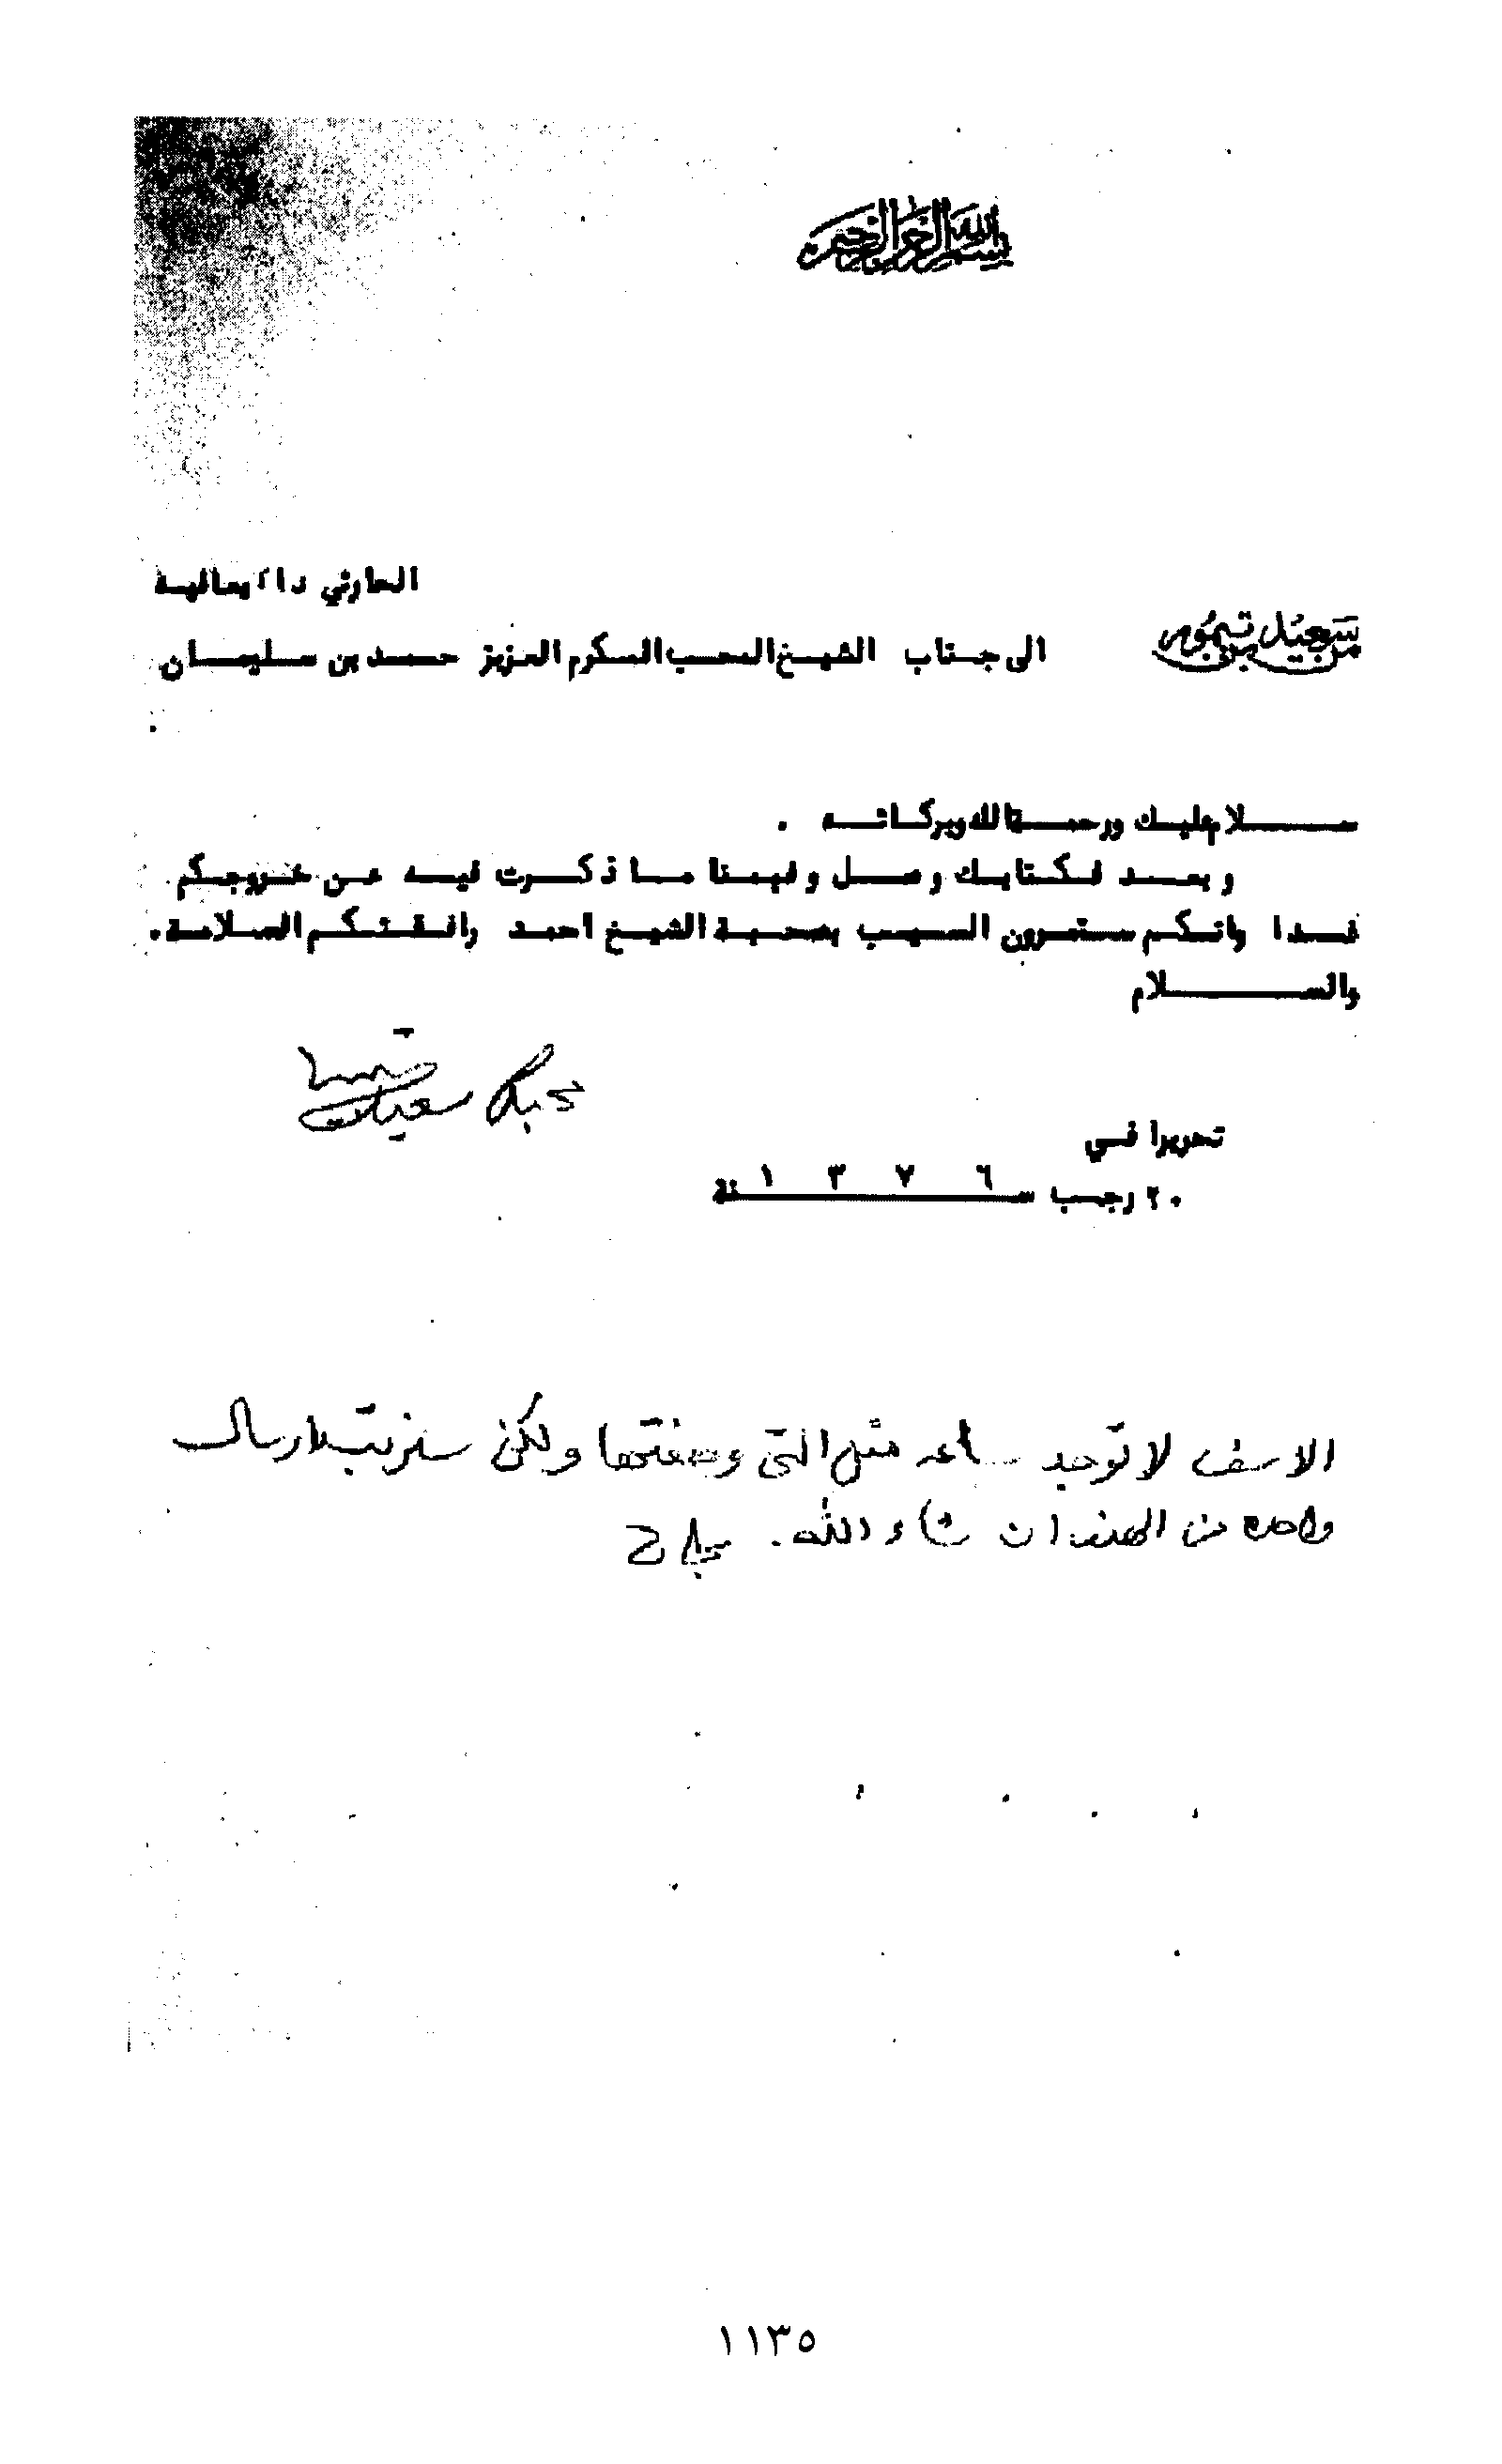 بسم الله الرحمن الرحيم
من سعيد بن تيمور
الى جناب الشيخ المحب المكرم العزيز حمد بن سليمان
الحارثي دام بعافية
سلام عليك ورحمة الله وبركاته .
وبعد فكتابك وصل وفهمنا ما ذكرت فيه عن خروجكم
غدا وانكم ستمرون السيب بصحبة الشيخ احمد رافقتكم السلامة .
والسلام
محبك سعيد بن تيمور
تحريرا في
٢٠ رجب سنة ١٣٧٦
الاسف لا توجد ساعه مثل التي وصفتها ولكن سنرتب لارسال
واحده من الهند ان شاء الله.
١١٣٥